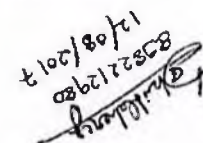 8982212980
12/08/2017